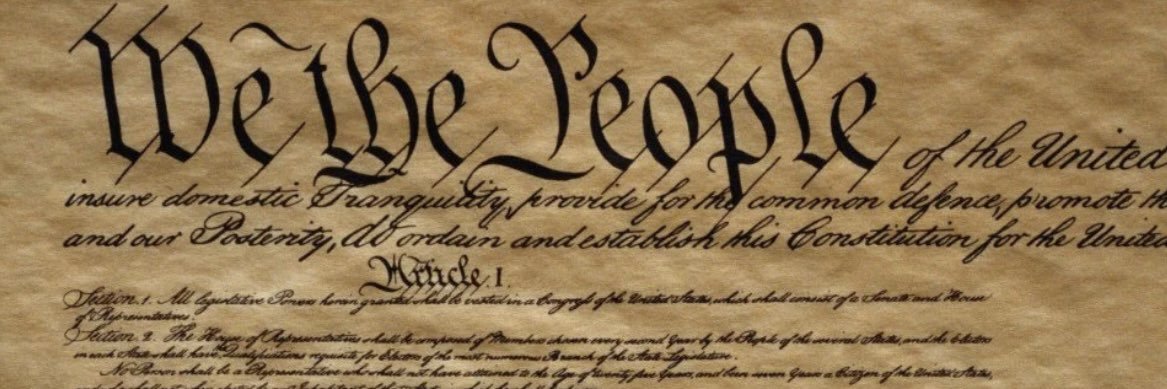 We the People of the United
insure domestic Tranquility, provide for the common defence, promote th
and our Posterity, do ordain and establish this Constitution for the United
Article. I.
Section. 1. All legislative Powers herein granted shall be vested in a Congress of the United States, which shall consist of a Senate and House
of Representatives.
Section. 2. The House of Representatives shall be composed of Members chosen every second Year by the People of the several States, and the Electors
in each State shall have the Qualifications requisite for Electors of the most numerous Branch of the State Legislature.
No Person shall be a Representative who shall not have attained to the Age of twenty five Years, and been seven Years a Citizen of the United States,